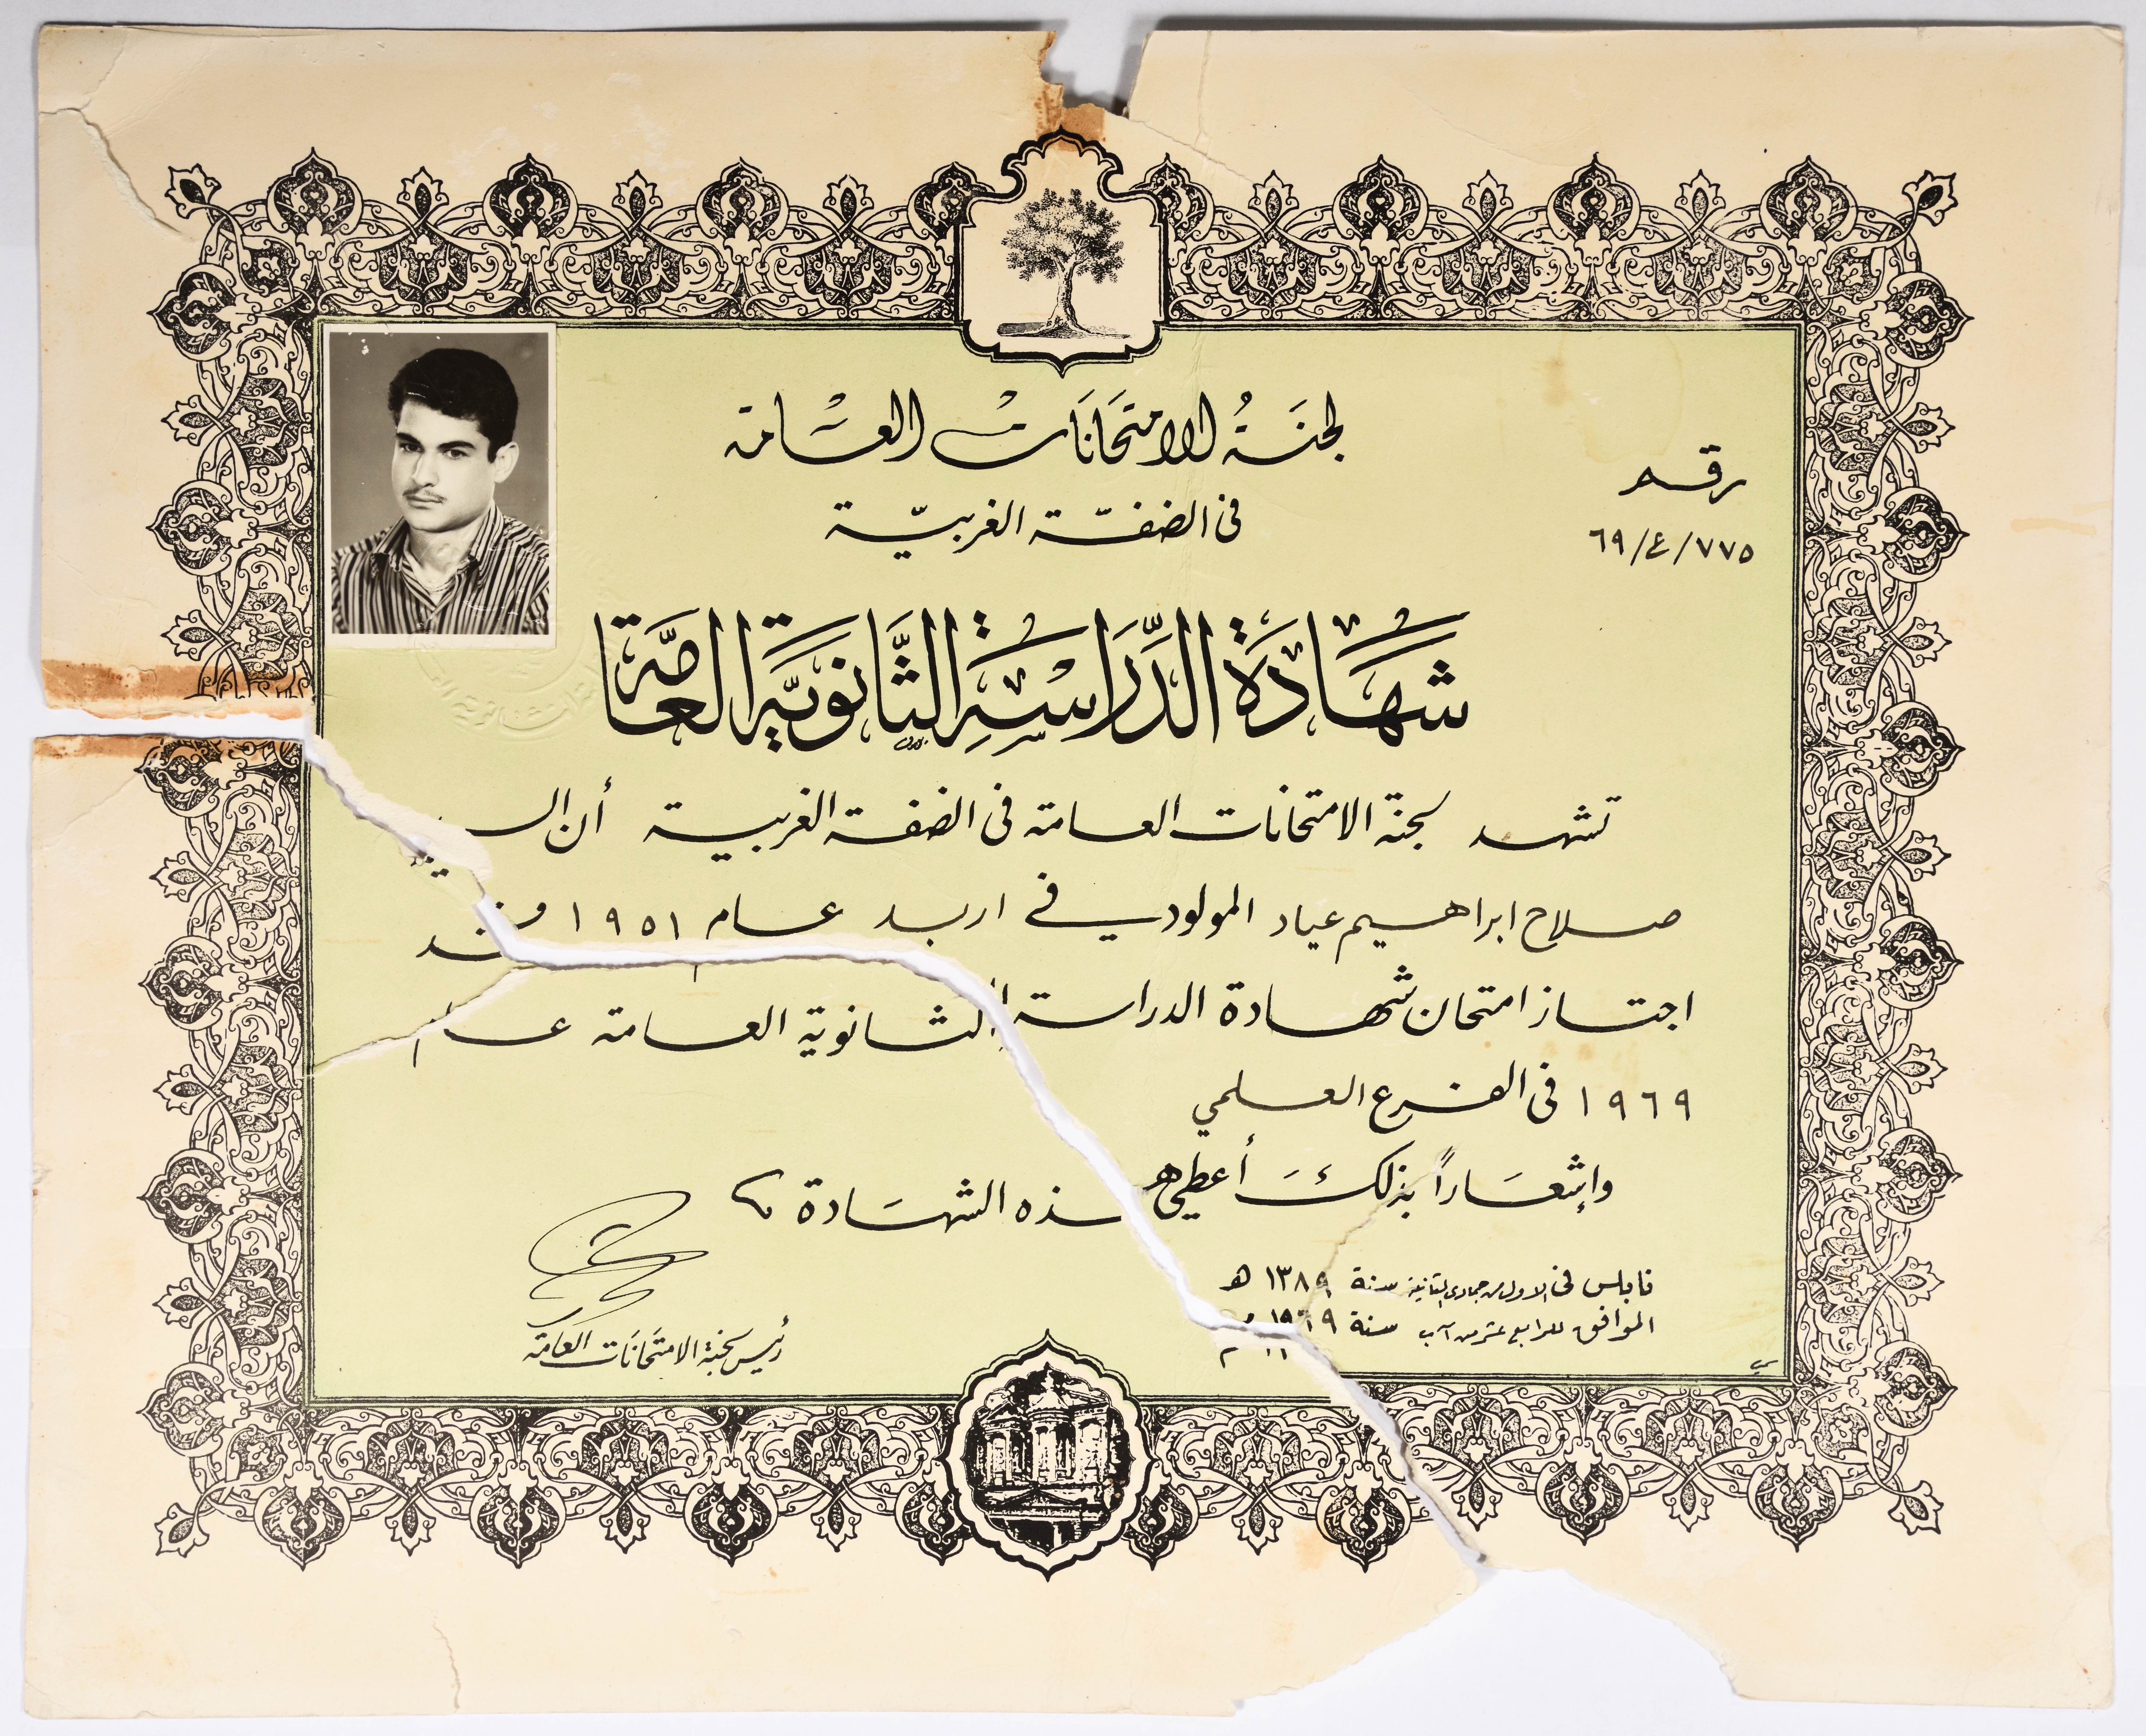 لجنَة الامتحَانَات العسَّامة
في الضفّة الغربيّة
رقم
٦٩/٤/٧٧٥
شهَادَة الدِّرَاسَةِ الثَّانَويَّةِ العَامَّة
تشهد لجنة الامتحانات العامة في الضفة الغربية أن السيد
صلاح ابراهيم عياد المولود في اربد عام ١٩٥١ قد
اجتاز امتحان شهادة الدراسة الثانوية العامة عام
١٩٦٩ في الفرع العلمي
وإشعَاراً بذلكَ أعطي هذه الشهَادة
نابلس في الاول من جمادى الثانية سنة ١٣٨٩ هـ
الموافق للرابع عشر من آب سنة ١٩٦٩ م
رئيس لجنة الامتحَانَات العَامّة